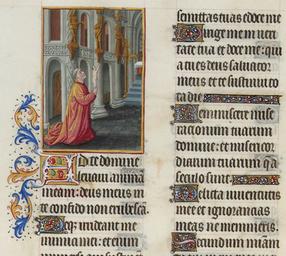 Ad te domine
levavi animā
meam: deus meus in
te confido non erubescā.
Neq3 irrideant me
inimici mei: et enim
semitas tuas edoce me
Dirige me in veri
tate tua et doce me: qui
a tu es deus salvator
meus et te sustinui to
ta die
Reminiscere mise
racionum tuarum
domine: et misericor
diarum tuarum q̄ a
seculo sunt
Delicta iuventutis
mee et ignorancias
meas ne memineris.
Secundum miām